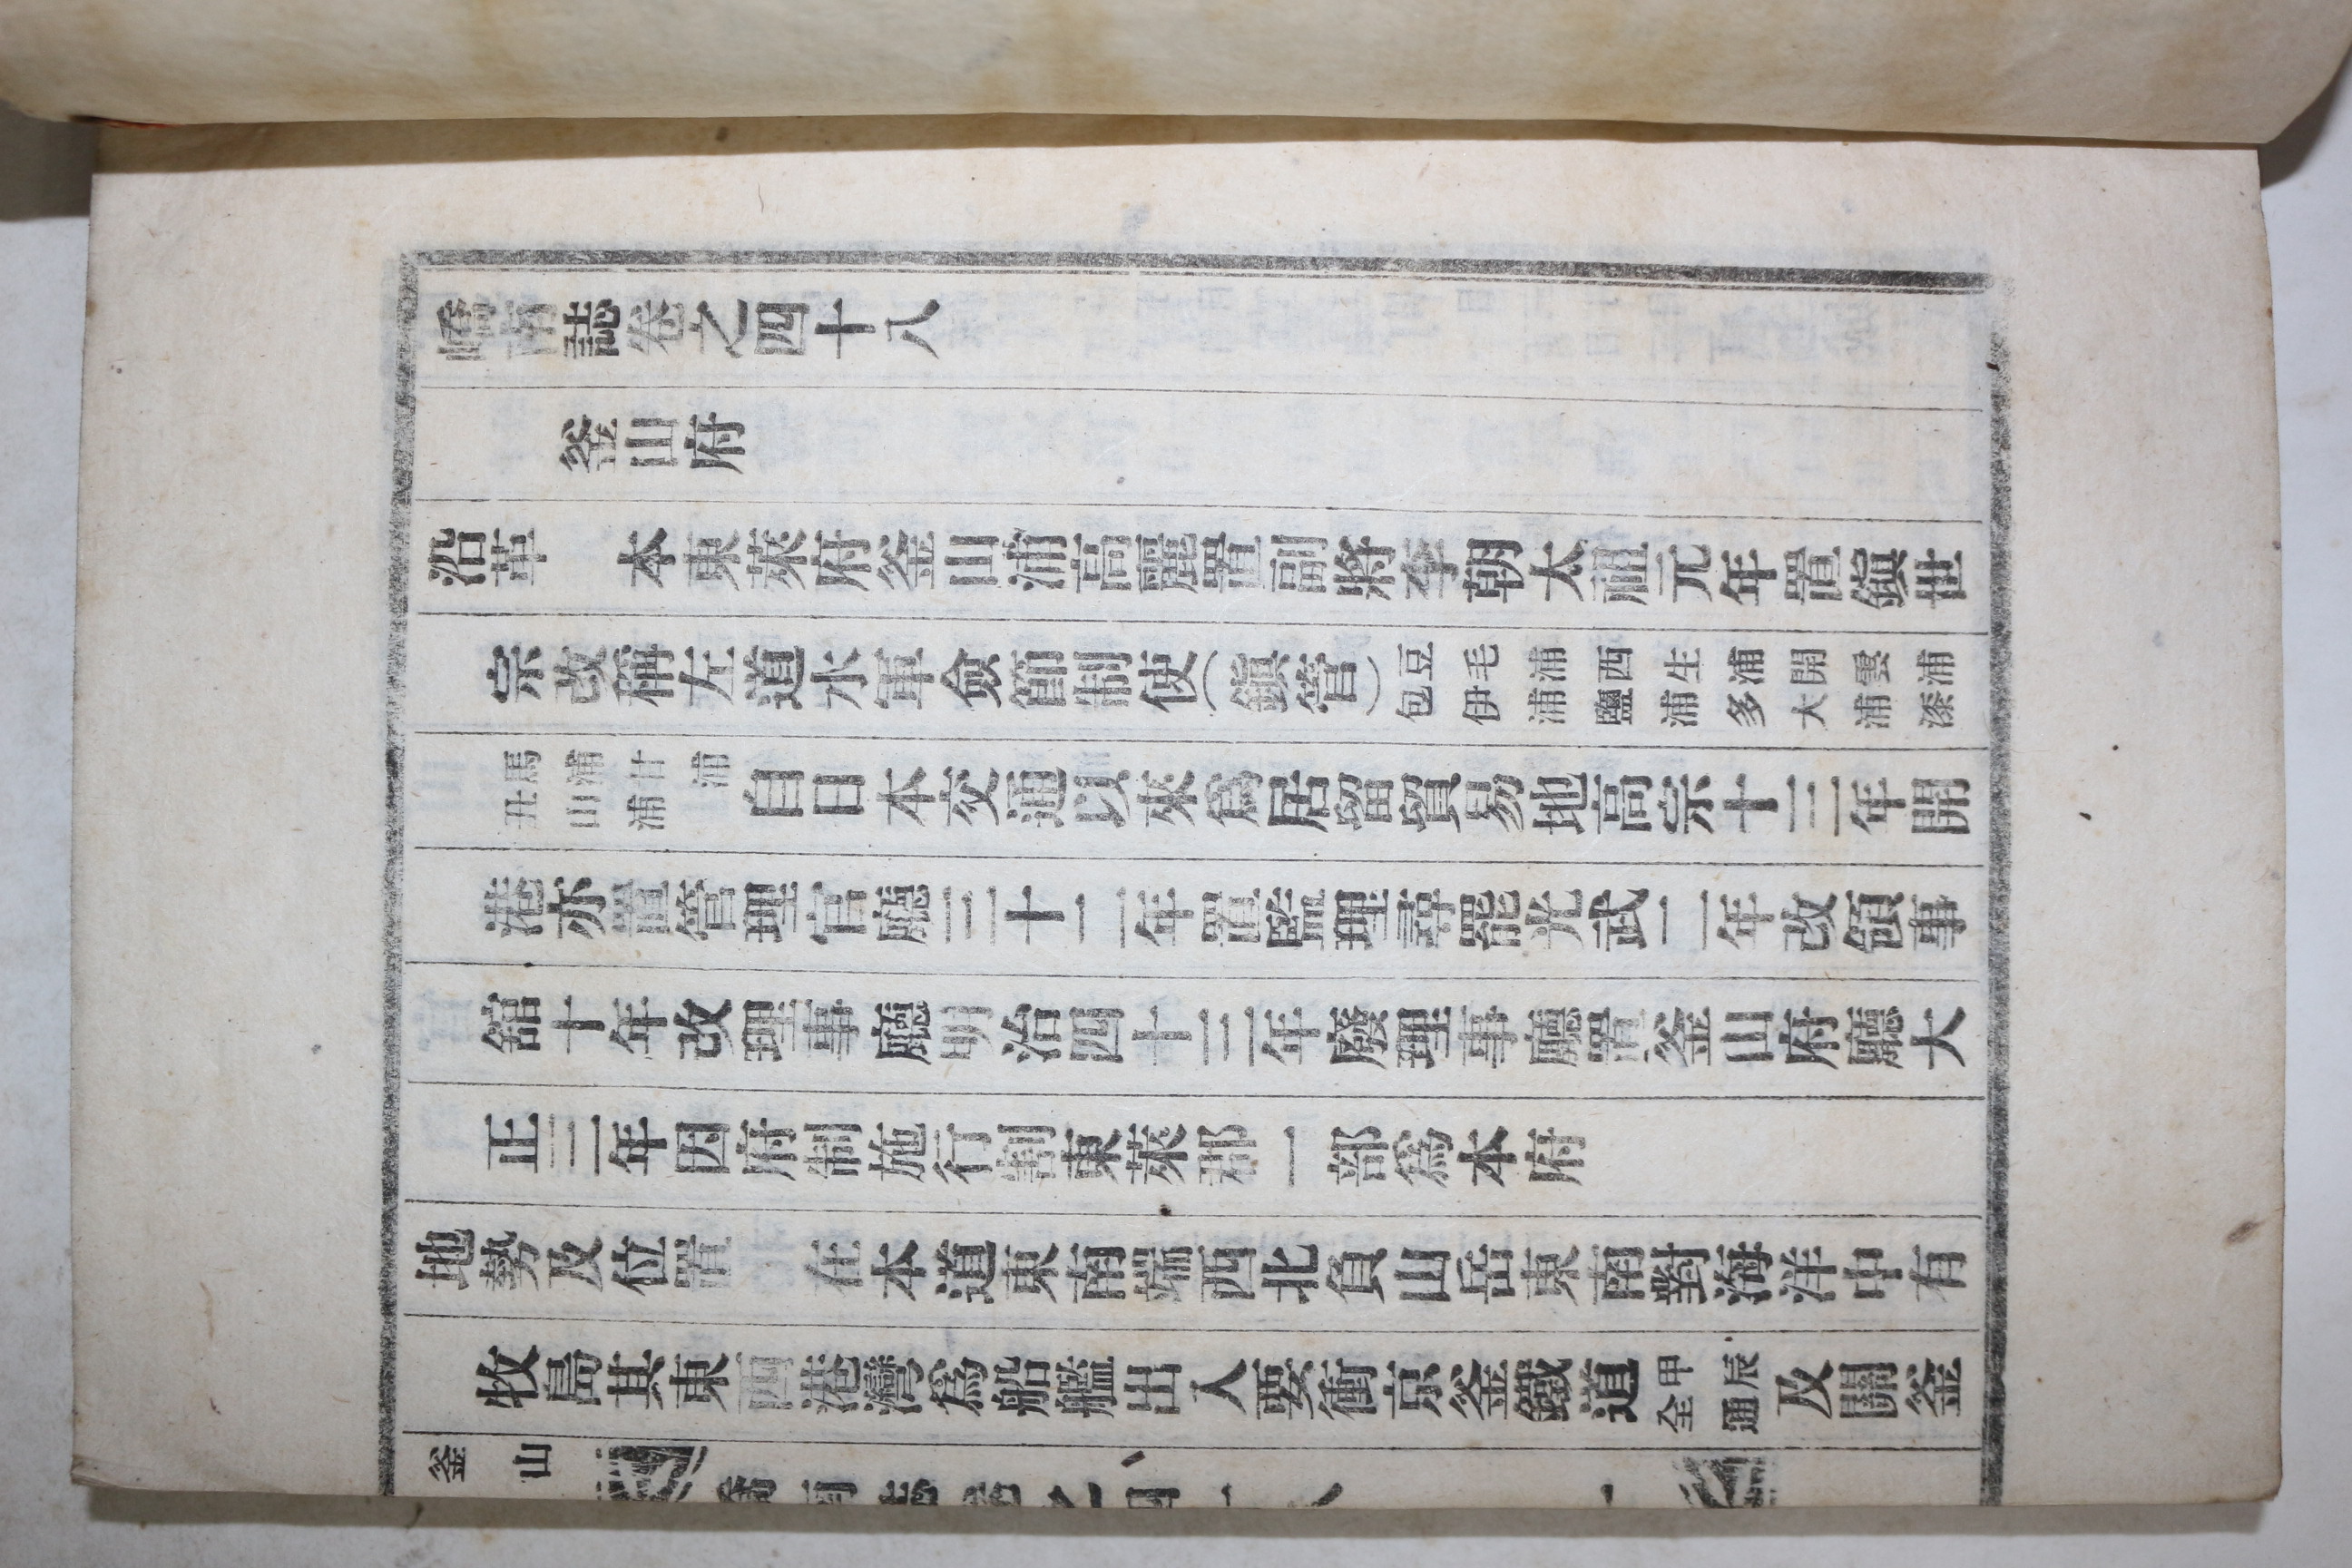 嶠南誌卷之四十八
釜山府
沿革 本東萊府釜山浦高麗置副將李朝太祖元年置鎭世
宗改稱左道水軍僉節制使(鎭管)豆毛浦西生浦開雲浦包伊浦鹽浦多大浦漆
馬浦廿浦丑山浦自日本交通以來爲居留貿易地高宗十三年開
港亦置管理官廳三十二年置監理尋罷光武二年改領事
舘十年改理事廳明治四十三年廢理事廳置釜山府廳大
正三年因府制施行割東萊郡一部爲本府
地勢及位置 在本道東南端西北負山岳東南對海洋中有
牧島其東西港灣爲船艦出入要衝京釜鐵道甲辰全通及關釜
釜山 嶠南誌卷之四十八 一